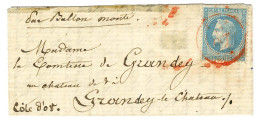 Par Ballon monté.
Madame
la Comtesse de Grancey
au château de
Grancey-le-Château
Côte d'or.